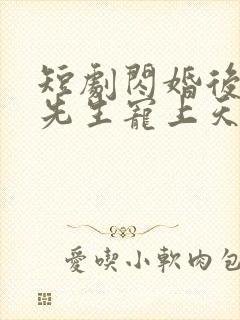 短劇閃婚後
先生寵上天
愛喫小軟肉包